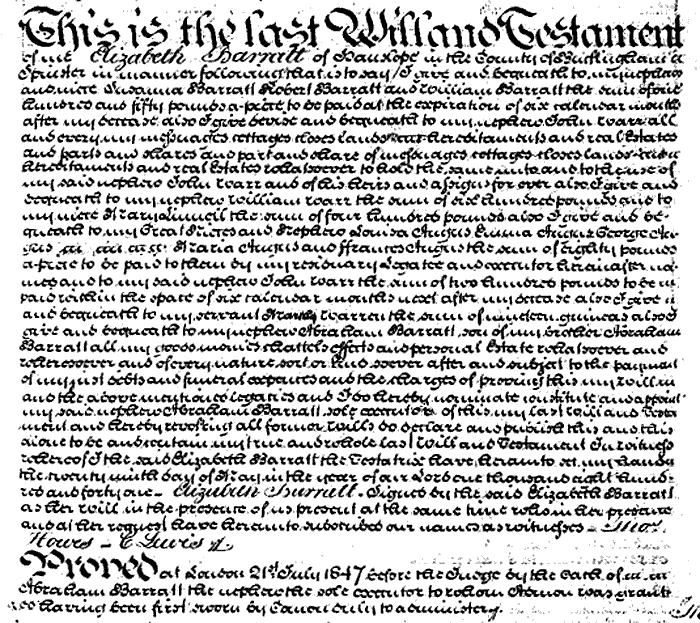 This is the last Will and Testament
of me Elizabeth Barratt of Hanslope in the County of Buckingham
Spinster in manner following that is to say I give and bequeath to my nephews
and niece Susanna Barratt Robert Barratt and William Barratt the sum of one
hundred and fifty pounds a piece to be paid at the expiration of six calendar months
after my decease also I give devise and bequeath to my nephew John Warr all
and every my messuages cottages closes lands hereditaments and real Estates
and parts and shares and part and share of messuages cottages closes lands
hereditaments and real Estates whatsoever to hold the same unto and to the use of
my said nephew John Warr and of his heirs and assigns for ever also I give and
bequeath to my nephew William Warr the sum of six hundred pounds and to
my niece Mary the sum of four hundred pounds also I give and be
queath to my Great Nieces and Nephews Louisa Emma George
Maria and ffrances the sum of Eighty pounds
a piece to be paid to them by my residuary Legatee and executor hereinafter na
med and to my said nephew John Warr the sum of two hundred pounds to be
paid within the space of six calendar months next after my decease also I give
and bequeath to my servant Warren the sum of nineteen guineas also I
give and bequeath to my nephew Abraham Barratt son of my brother Abraham
Barratt all my goods monies chattels effects and personal Estate whatsoever and
wheresoever and of every nature sort or kind soever after and subject to the payment
of my just debts and funeral expences and the charges of proving this my will
and the above mentioned legacies and I do hereby nominate constitute and appoint
my said nephew Abraham Barratt sole executor of this my last will and Testa
ment and hereby revoking all former wills do declare and publish this and this
alone to be and contain my true and whole last Will and Testament In witness
whereof I the said Elizabeth Barratt the Testatrix have hereunto set my hand
the twenty ninth day of May in the year of our Lord one thousand eight hund
red and forty one - Elizabeth Barratt - Signed by the said Elizabeth Barratt
as her will in the presence of us present at the same time who in her presence
and at her request have hereunto subscribed our names as witnesses - Thos.
Howes - C Lewis
Proved at London 21st July 1847 before the Judge by the Oath of
Abraham Barratt the nephew the sole executor to whom Admon was grant
ed having been first sworn by Comon duly to administer.